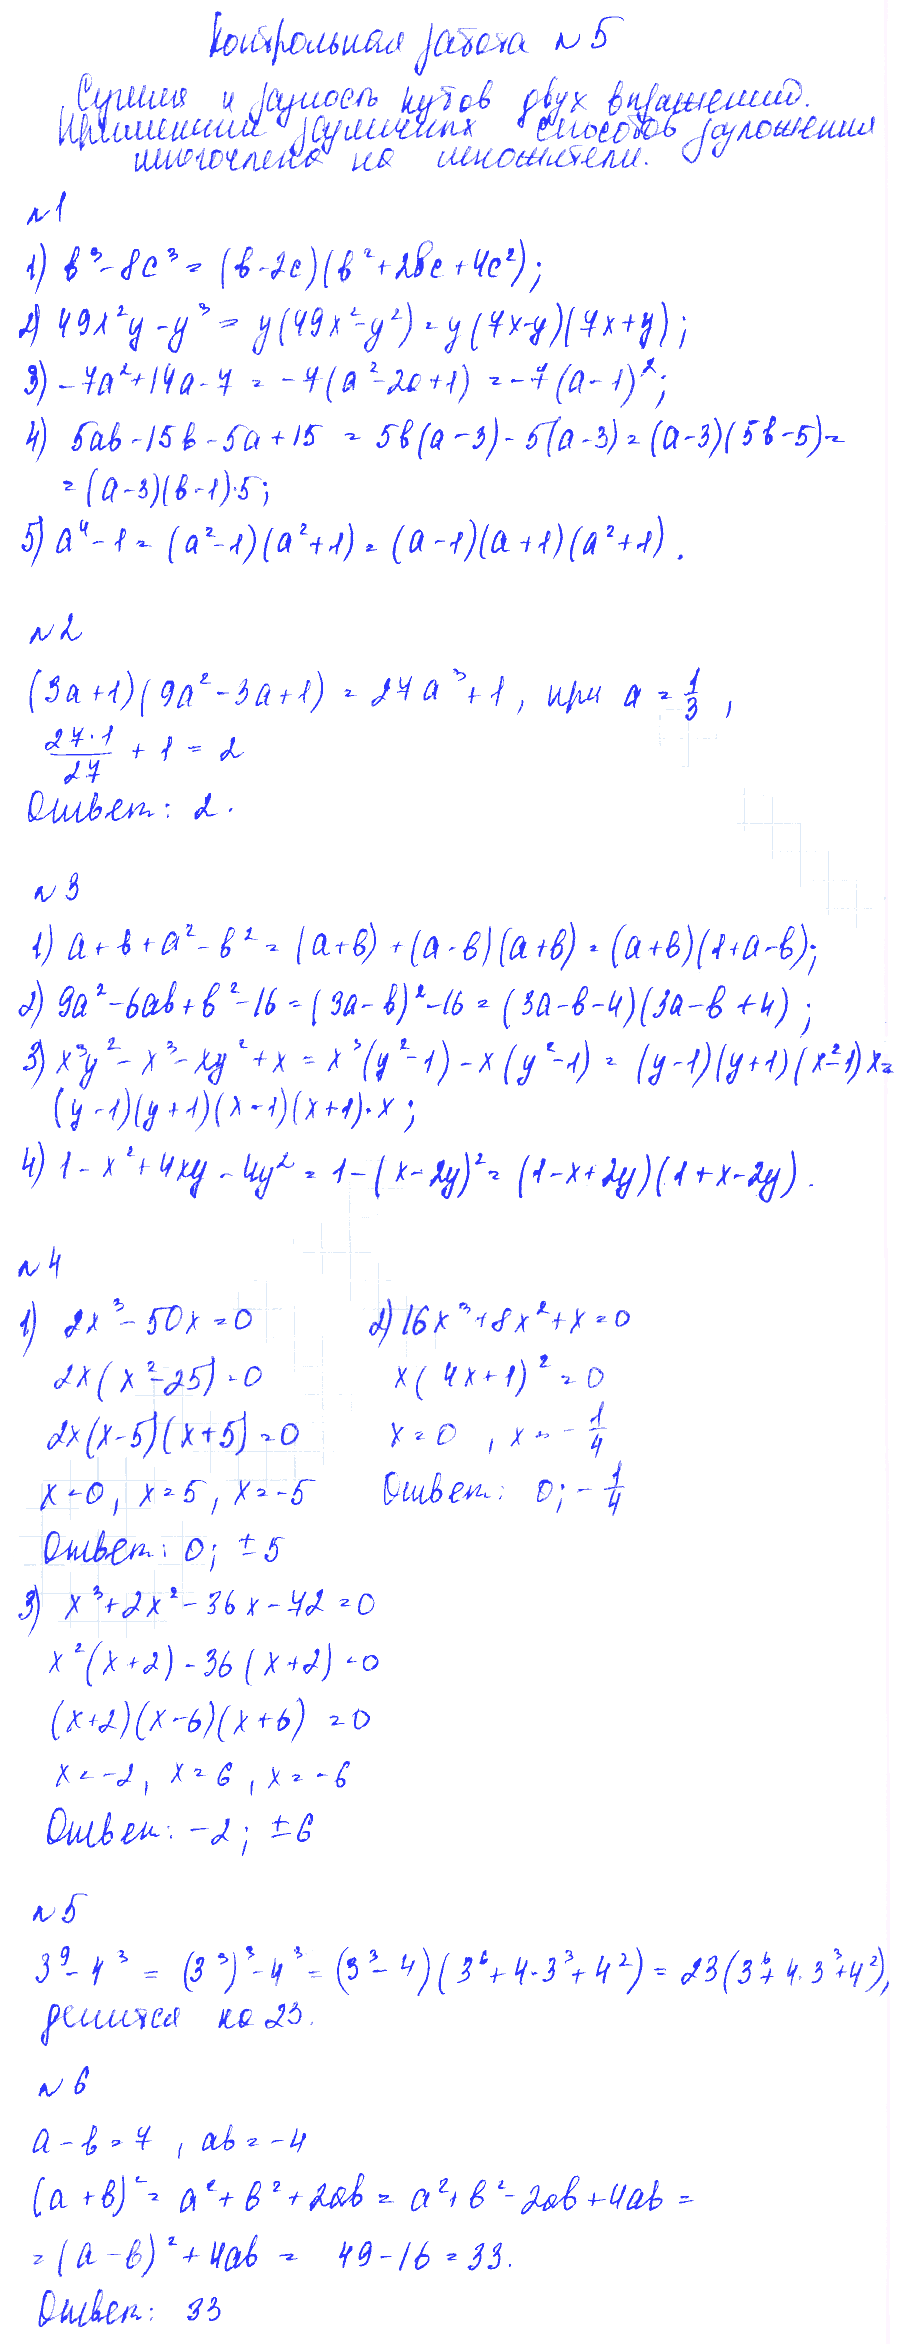 Контрольная работа №5
Сумма и разность кубов двух выражений.
Применение различных способов разложения
многочлена на множители.
№1
1) b³ - 8c³ = (b - 2c)(b² + 2bc + 4c²);
2) 49x²y - y³ = y(49x² - y²) = y(7x - y)(7x + y);
3) -7a² + 14a - 7 = -7(a² - 2a + 1) = -7(a - 1)²;
4) 5ab - 15b - 5a + 15 = 5b(a - 3) - 5(a - 3) = (a - 3)(5b - 5) =
= (a - 3)(b - 1)·5;
5) a⁴ - 1 = (a² - 1)(a² + 1) = (a - 1)(a + 1)(a² + 1).
№2
(3a + 1)(9a² - 3a + 1) = 27a³ + 1, при a = 1/3,
27·1/27 + 1 = 2
Ответ: 2.
№3
1) a + b + a² - b² = (a + b) + (a - b)(a + b) = (a + b)(1 + a - b);
2) 9a² - 6ab + b² - 16 = (3a - b)² - 16 = (3a - b - 4)(3a - b + 4);
3) x³y² - x³ - xy² + x = x³(y² - 1) - x(y² - 1) = (y - 1)(y + 1)(x² - 1)x =
(y - 1)(y + 1)(x - 1)(x + 1)·x;
4) 1 - x² + 4xy - 4y² = 1 - (x - 2y)² = (1 - x + 2y)(1 + x - 2y).
№4
1) 2x³ - 50x = 0
2x(x² - 25) = 0
2x(x - 5)(x + 5) = 0
x = 0, x = 5, x = -5
Ответ: 0; ±5
2) 16x³ + 8x² + x = 0
x(4x + 1)² = 0
x = 0, x = -1/4
Ответ: 0; -1/4
3) x³ + 2x² - 36x - 72 = 0
x²(x + 2) - 36(x + 2) = 0
(x + 2)(x - 6)(x + 6) = 0
x = -2, x = 6, x = -6
Ответ: -2; ±6
№5
3⁹ - 4³ = (3³)³ - 4³ = (3³ - 4)(3⁶ + 4·3³ + 4²) = 23(3⁶ + 4·3³ + 4²),
делится на 23.
№6
a - b = 7, ab = -4
(a + b)² = a² + b² + 2ab = a² + b² - 2ab + 4ab =
= (a - b)² + 4ab = 49 - 16 = 33.
Ответ: 33